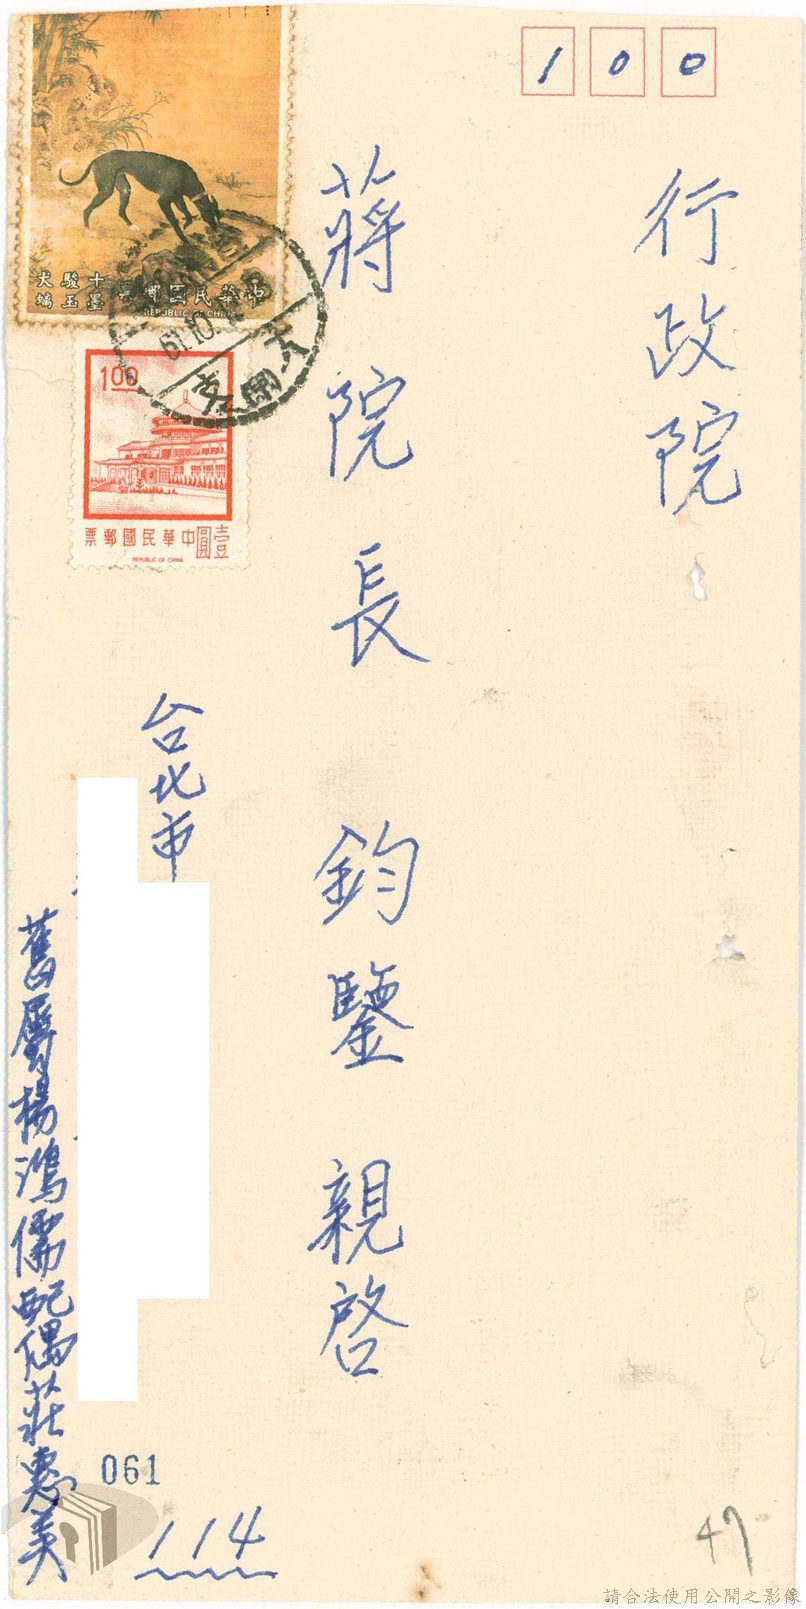 100
行政院
蔣院長 鈞鑒 親啓
台北市
舊屬楊鴻儒配偶莊惠美
114
061
47
十駿犬
墨玉螭
中華民國郵票
REPUBLIC OF CHINA
61.10.
1.00
壹圓中華民國郵票
REPUBLIC OF CHINA
請合法使用公開之影像